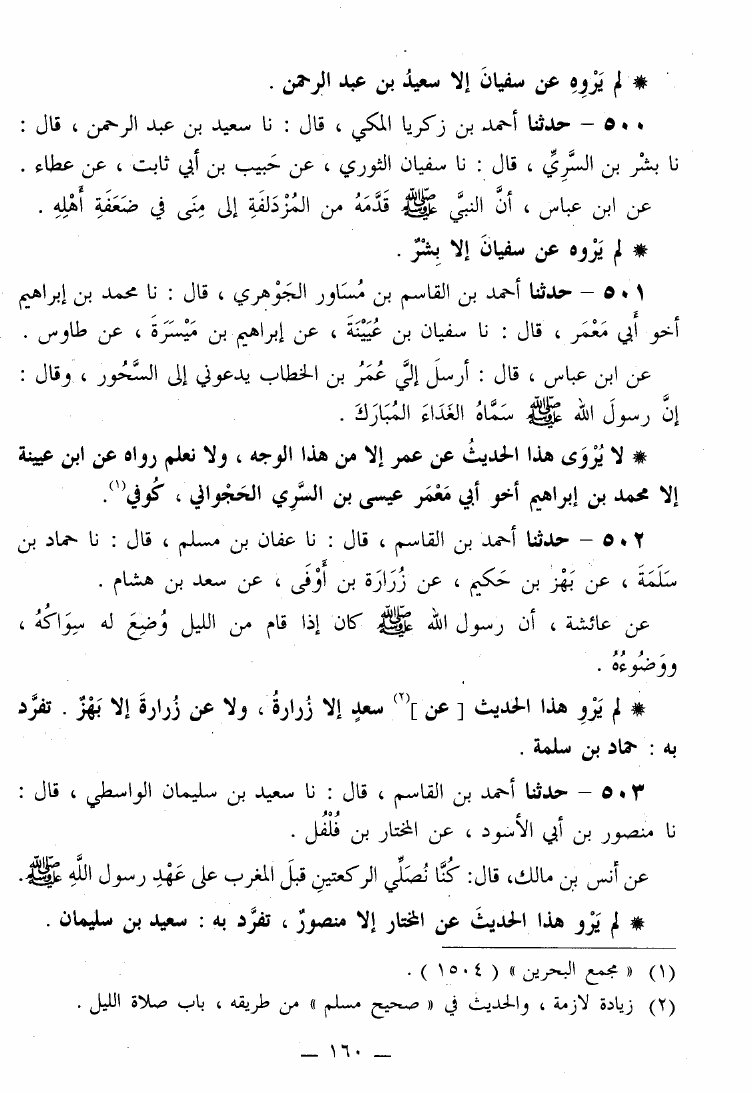 * لم يَرْوِهِ عن سفيانَ إلا سعيدُ بن عبد الرحمن .
٥٠٠ – حدثنا أحمد بن زكريا المكي ، قال : نا سعيد بن عبد الرحمن ، قال :
نا بشْر بن السَّرِيِّ ، قال : نا سفيان الثوري ، عن حَبيب بن أبي ثابت ، عن عطاء .
عن ابن عباس ، أنَّ النبيَّ ﷺ قَدَّمَهُ من المُزْدَلفَةِ إلى مِنَى في ضَعَفَةِ أَهْلِهِ .
* لم يَرْوه عن سفيانَ إلا بِشْرٌ .
٥٠١ – حدثنا أحمد بن القاسم بن مُسَاور الجَوْهري ، قال : نا محمد بن إبراهيم
أخو أَبي مَعْمَر ، قال : نا سفيان بن عُيَيْنَةَ ، عن إبراهيم بن مَيْسَرَةَ ، عن طاوس .
عن ابن عباس ، قال : أرسلَ إليَّ عُمَرُ بن الخطاب يدعوني إلى السَّحُور ، وقال :
إنَّ رسولَ الله ﷺ سَمَّاهُ الغَدَاءَ المُبَارَكَ .
* لا يُرْوَى هذا الحديثُ عن عمر إلا من هذا الوجه ، ولا نعلم رواه عن ابن عيينة
إلا محمد بن إبراهيم أخو أبي مَعْمَر عيسى بن السَّرِي الحَجْواني ، كُوفي(١).
٥٠٢ – حدثنا أحمد بن القاسم ، قال : نا عفان بن مسلم ، قال : نا حماد بن
سَلَمَةَ ، عن بَهْز بن حَكيم ، عن زُرَارَة بن أَوْفَى ، عن سعد بن هشام .
عن عائشة ، أن رسول الله ﷺ كان إذا قام من الليل وُضِعَ له سِوَاكُهُ ،
ووَضُوءُهُ .
* لم يَرْوِ هذا الحديث [ عن ](٢) سعدٍ إلا زُرارةُ ، ولا عن زُرارةَ إلا بَهْزٌ . تفرَّد
به : حماد بن سلمة .
٥٠٣ – حدثنا أحمد بن القاسم ، قال : نا سعيد بن سليمان الواسطي ، قال :
نا منصور بن أبي الأسود ، عن المختار بن فُلْفُل .
عن أنس بن مالك، قال: كُنَّا نُصَلِّي الركعتينِ قبلَ المغرب على عَهْدِ رسول اللَّهِ ﷺ.
* لم يَرْو هذا الحديثَ عن المختار إلا منصورٌ ، تفرَّد به : سعيد بن سليمان .
(١) « مجمع البحرين » ( ١٥٠٤ ) .
(٢) زيادة لازمة ، والحديث في « صحيح مسلم » من طريقه ، باب صلاة الليل .
– ١٦٠ –